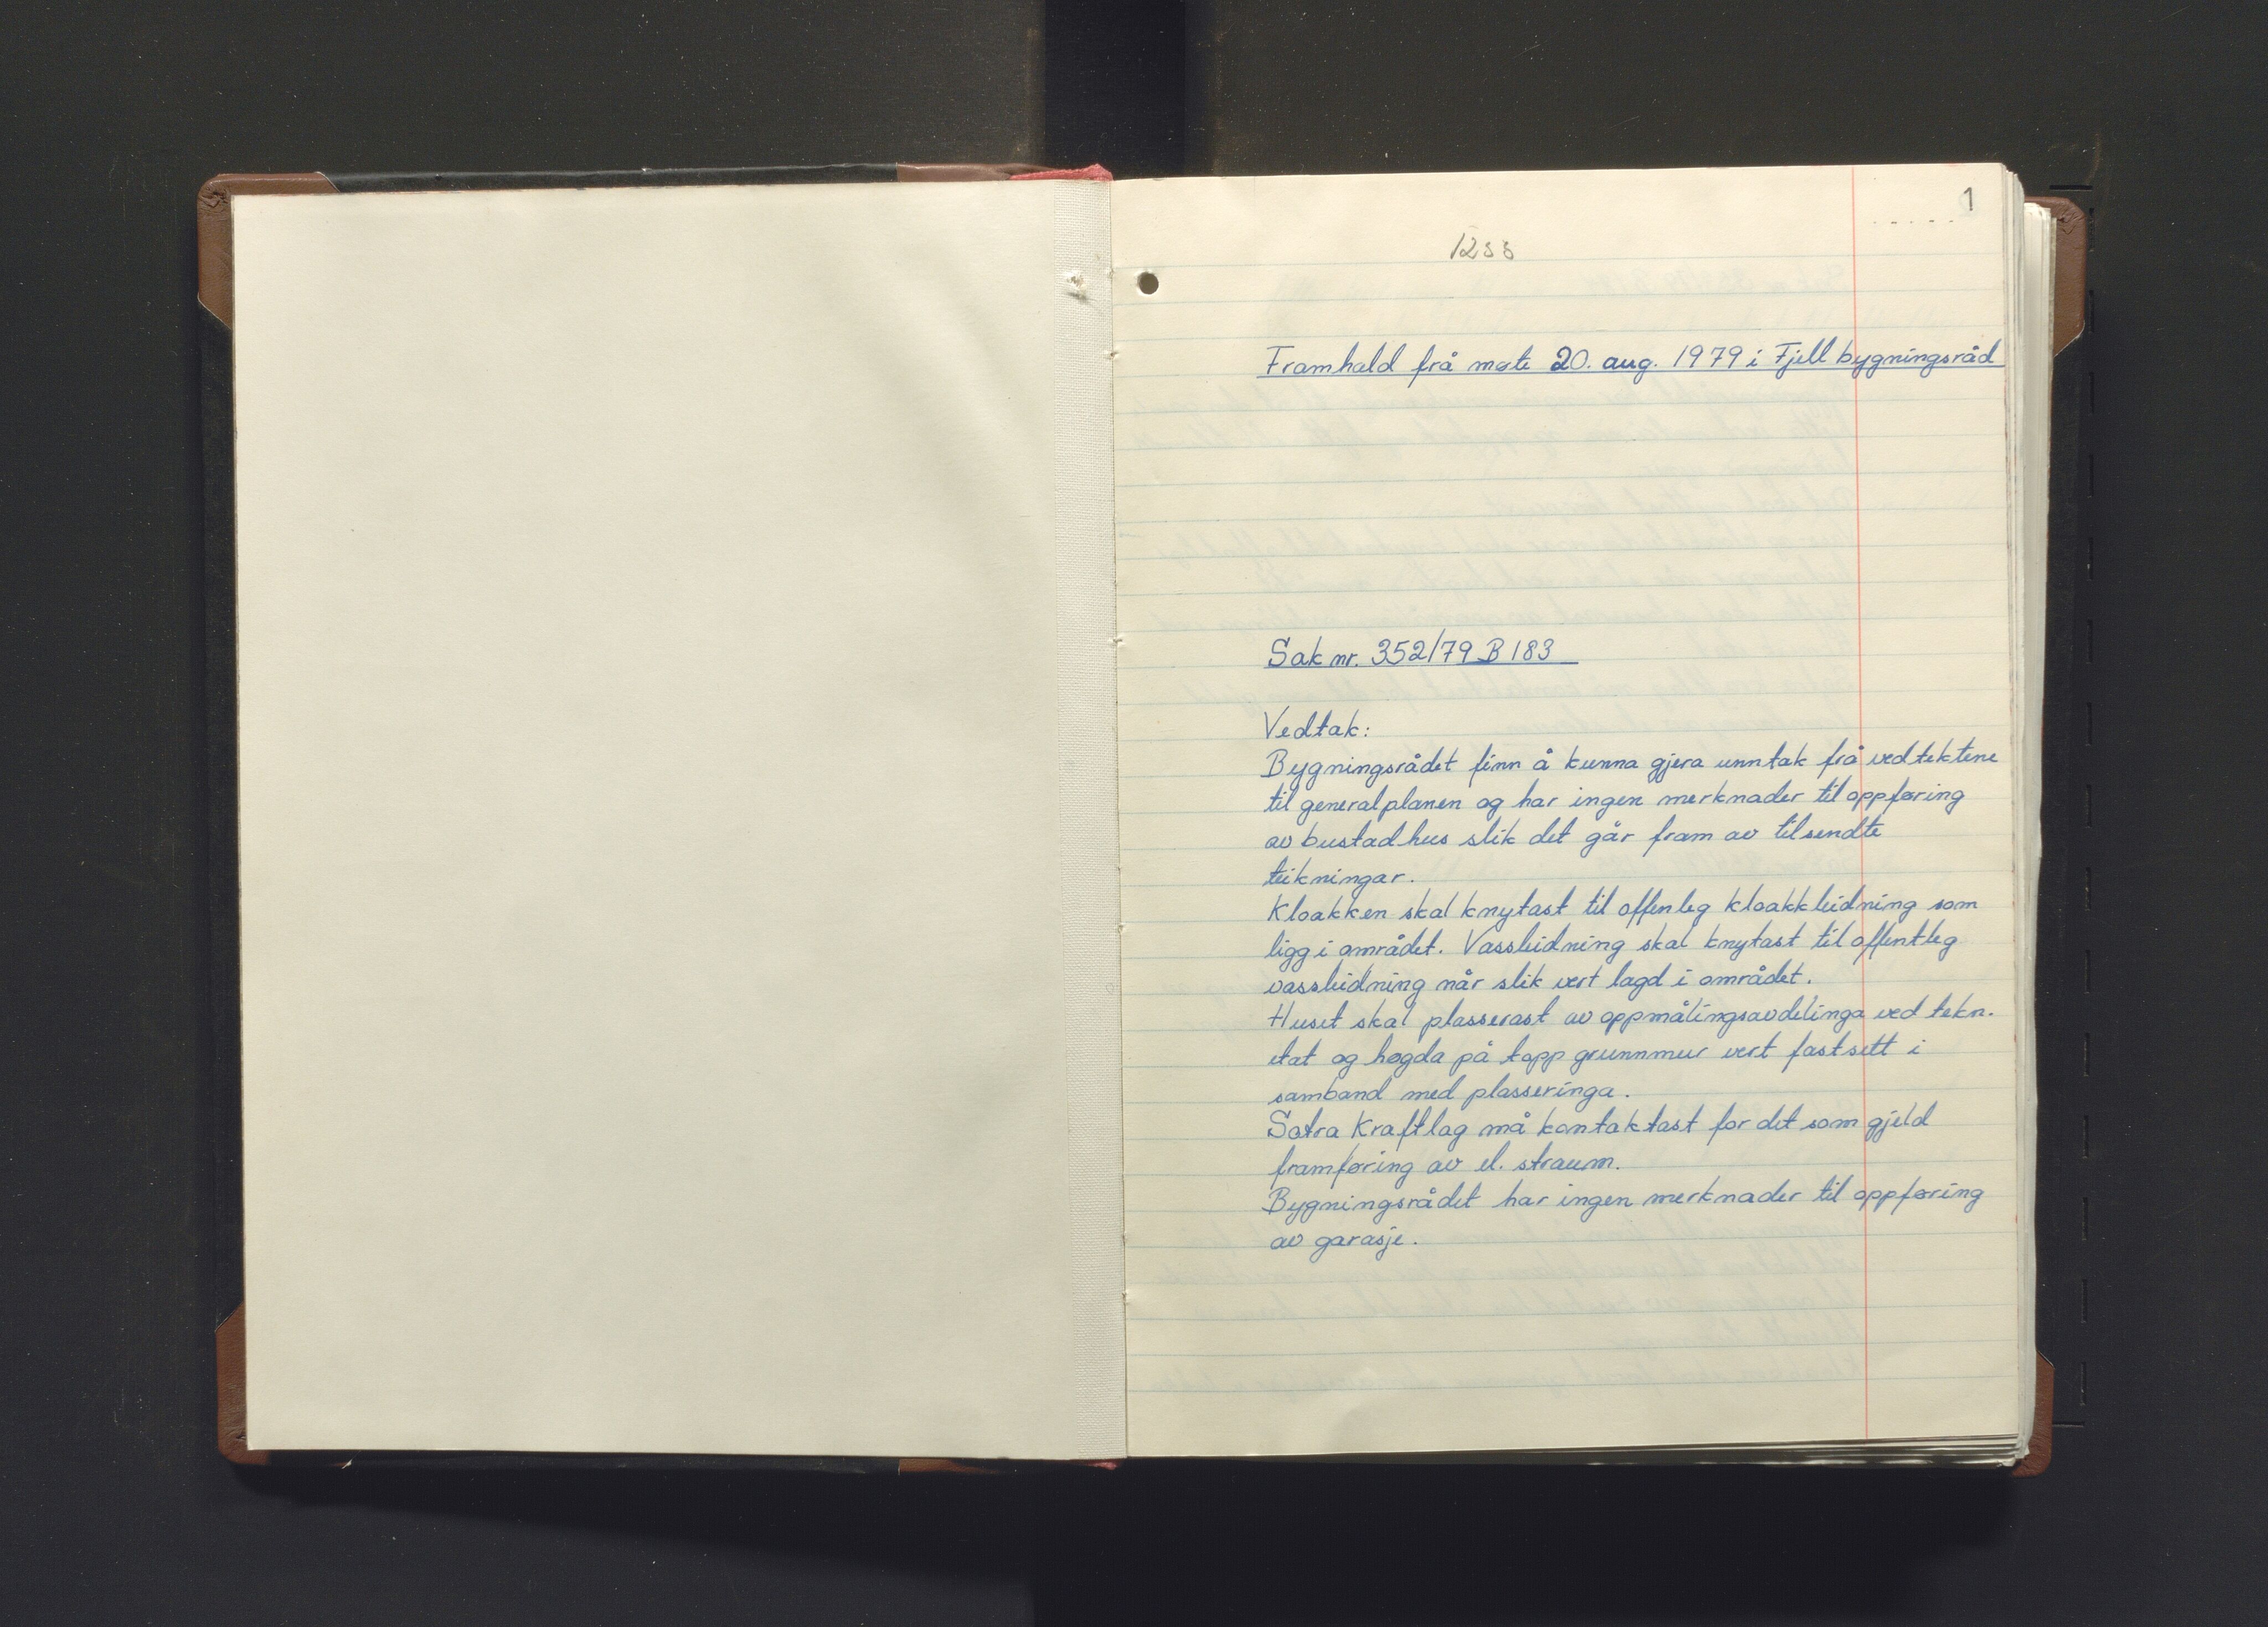 1
Framhald frå møte 20. aug. 1979 i Fjell bygningsråd
Sak nr. 352/79 B 183
Vedtak:
Bygningsrådet finn å kunna gjera unntak frå vedtektene
til generalplanen og har ingen merknader til oppføring
av bustadhus slik det går fram av tilsendte
teikningar.
Kloakken skal knytast til offenleg kloakkleidning som
ligg i området. Vassleidning skal knytast til offentleg
vassleidning når slik vert lagd i området.
Huset skal plasserast av oppmålingsavdelinga ved tekn.
etat og høgda på topp grunnmur vert fastsett i
samband med plasseringa.
Sotra Kraftlag må kontaktast for det som gjeld
framføring av el. straum.
Bygningsrådet har ingen merknader til oppføring
av garasje.